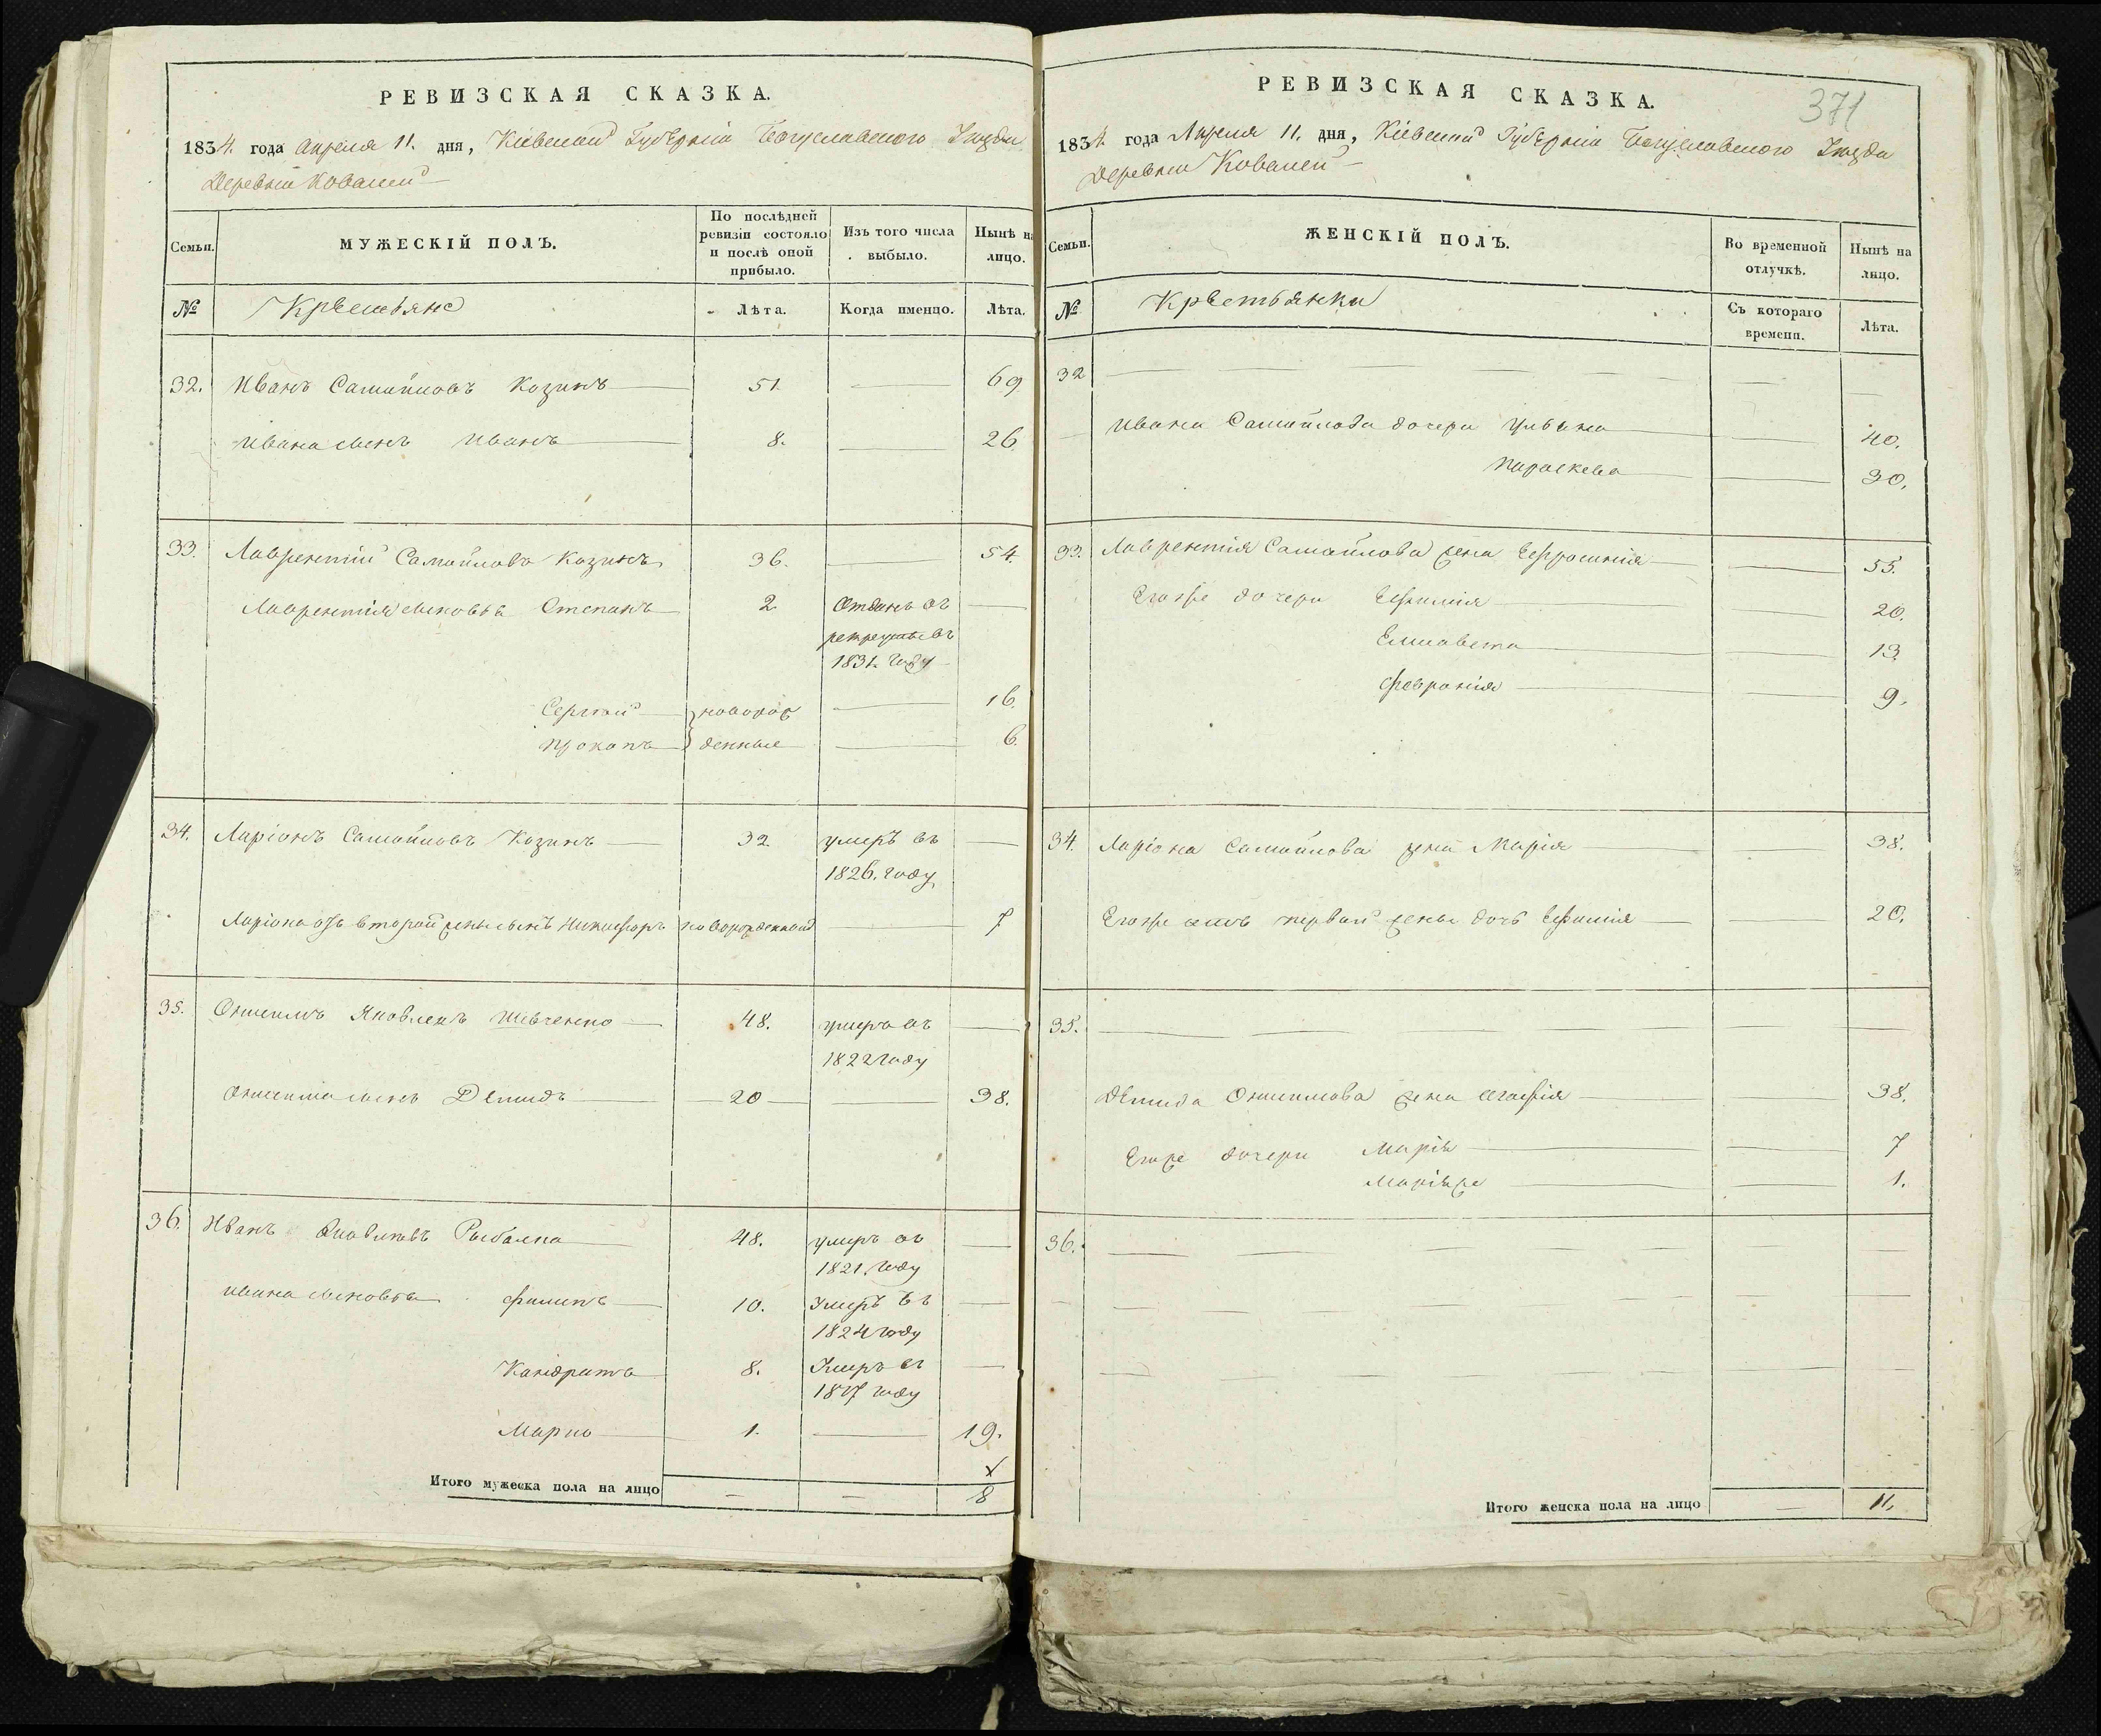 РЕВИЗСКАЯ СКАЗКА.
1834 года Апреля 11. дня, Кіевской Губерніи Богуславского Уезда
Деревни Ковалей
Семьи.
МУЖЕСКІЙ ПОЛЪ.
По послѣдней ревизіи состояло и послѣ оной прибыло.
Изъ того числа выбыло.
Нынѣ на лицо.
№
Крестьяне
Лѣта.
Когда именно.
Лѣта.
32. Иванъ Самойловъ Козинъ 51. 69
Ивана сынъ Иванъ 8. 26.
33. Лаврентій Самойловъ Козинъ 36. 54.
Лаврентія сыновья Степанъ 2 Отданъ въ
рекруты въ
1831. году
Сергей новорож 16.
Прокопъ денные 6.
34. Ларіонъ Самойловъ Козинъ 32 умеръ въ
1826. году
Ларіона отъ второй жены сынъ Никифоръ новорожденной 7
35. Онисимъ Яковлевъ Шевченко 48. умеръ въ
1822 году
Онисима сынъ Демидъ 20 38.
36. Иванъ Яковлевъ Рыбалка 48. умеръ въ
1821. году
Ивана сыновья Филипъ 10. Умеръ въ
1824 году
Кандратъ 8. Умеръ въ
1817 году
Марко 1. 19.
Итого мужеска пола на лицо 8
371
РЕВИЗСКАЯ СКАЗКА.
1834. года Апреля 11. дня, Кіевской Губерніи Богуславского Уезда
Деревни Ковалей
Семьи.
ЖЕНСКІЙ ПОЛЪ.
Во временной отлучкѣ.
Нынѣ на лицо.
№
Крестьянки
Съ котораго времени.
Лѣта.
32
Ивана Самойлова дочери Ульяна 40.
Параскева 30.
33. Лаврентія Самойлова жена Ефросинія 55.
Егоже дочери Ефимія 20.
Елисавета 13.
Февронія 9.
34. Ларіона Самойлова жена Марія 38.
Егоже отъ первой жены дочь Ефимія 20.
35.
Демида Онисимова жена Агафія 38.
Егоже дочери Марія 7
Марія же 1.
36.
Итого женска пола на лицо 11.